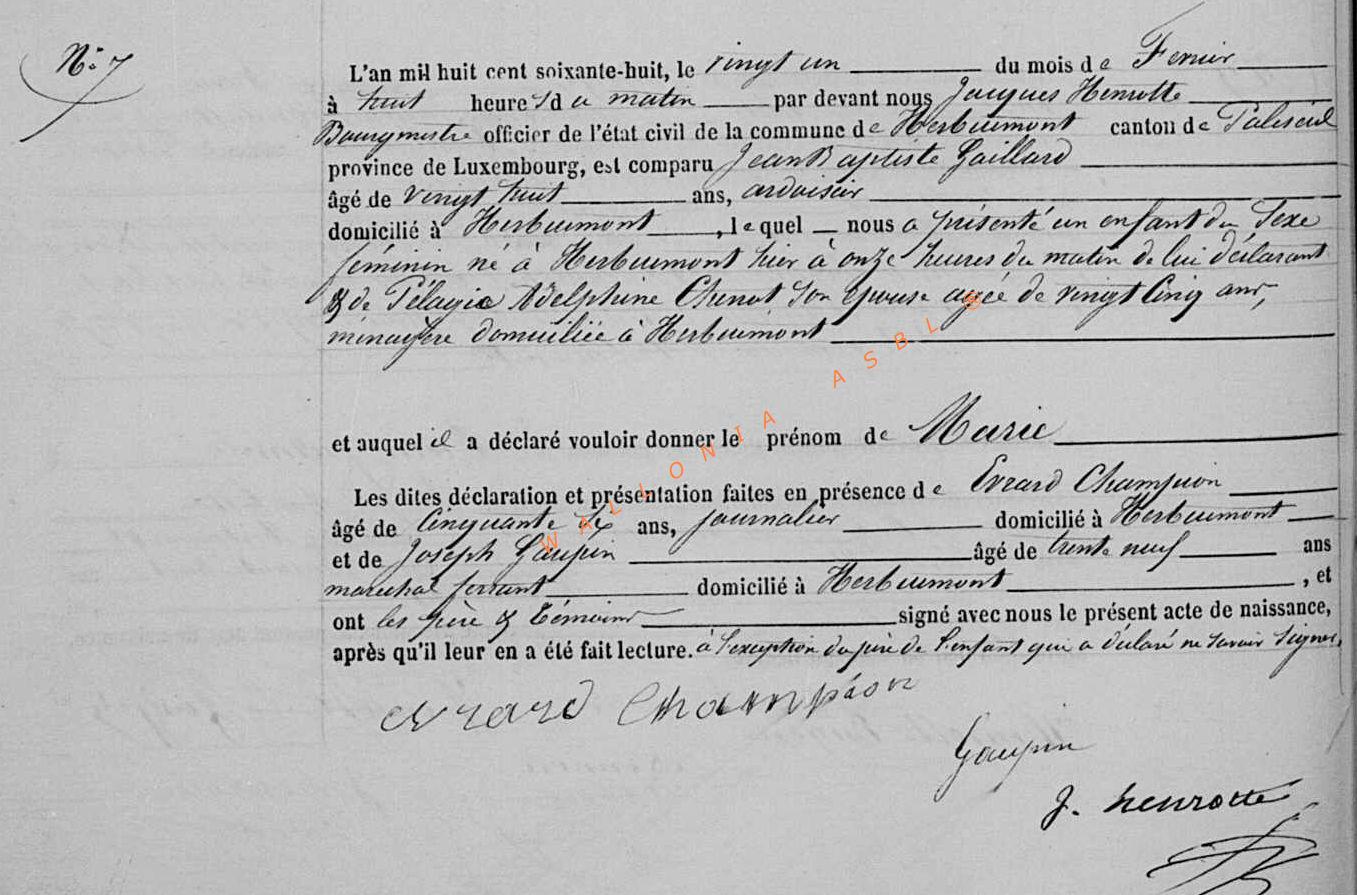 N° 7
L'an mil huit cent soixante-huit, le vingt un du mois de Fevrier
à huit heures du matin par devant nous Jacques Henrotte
Bourgmestre officier de l'état civil de la commune de Herbeumont canton de Paliseul
province de Luxembourg, est comparu Jean Baptiste Gaillard
âgé de vingt huit ans, ardoisier
domicilié à Herbeumont, lequel nous a présenté un enfant du Sexe
féminin né à Herbeumont hier à onze heures du matin de lui déclarant
& de Pélagie Adelphine Chenot Son epouse agée de vingt Cinq ans,
ménagère domiciliée à Herbeumont
et auquel il a déclaré vouloir donner le prénom de Marie
Les dites déclaration et présentation faites en présence de Evrard Champion
âgé de Cinquante Six ans, journalier domicilié à Herbeumont
et de Joseph Gaupin âgé de trente neuf ans
maréchal ferrant domicilié à Herbeumont, et
ont les père & témoins signé avec nous le présent acte de naissance,
après qu'il leur en a été fait lecture. à l'exception du père de l'enfant qui a déclaré ne savoir signer.
evrard Champion
Gaupin
J. henrotte
WALLONIA ASBL ©